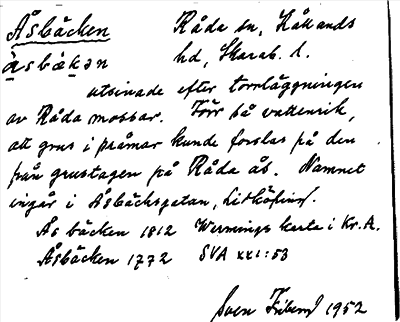 Åsbäcken Råda sn, Kållands
åsbäkən hd, Skarab. l.
utsinade efter torrläggningen
av Råda mossar. Förr så vattenrik,
att grus i pråmar kunde forslas på den
från grustagen på Råda ås. Namnet
ingår i Åsbäcksgatan, Lidköping.
Ås bäcken 1812 Wermings karta i Kr. A.
Åsbäcken 1772 SVA XXI:53
Sven 1952